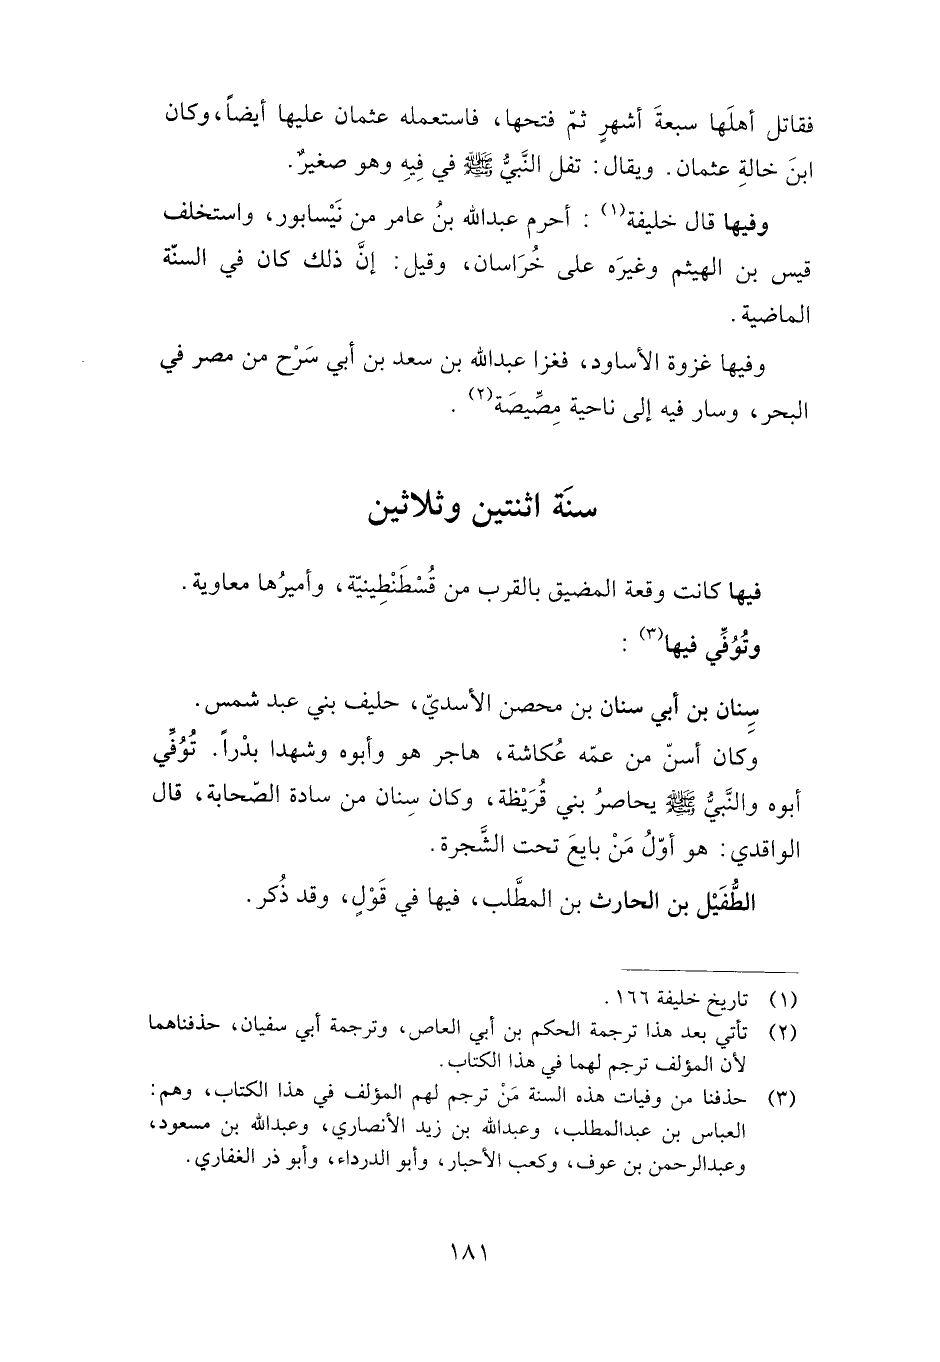 فقاتل أهلَها سبعةَ أشهرٍ ثمّ فتحها، فاستعمله عثمان عليها أيضاً، وكان
ابنَ خالةِ عثمان. ويقال: تفل النَّبيُّ ﷺ في فِيهِ وهو صغيرٌ.
وفيها قال خليفة(١) : أحرم عبدالله بنُ عامر من نَيْسابور، واستخلف
قيس بن الهيثم وغيرَه على خُرَاسان، وقيل: إنَّ ذلك كان في السنّة
الماضية.
وفيها غزوة الأساود، فغزا عبدالله بن سعد بن أبي سَرْح من مصر في
البحر، وسار فيه إلى ناحية مِصِّيصَة(٢) .
سنَة اثنتين وثلاثين
فيها كانت وقعة المضيق بالقرب من قُسْطَنْطِينيّة، وأميرُها معاوية.
وتُوُفِّي فيها(٣) :
سِنان بن أبي سنان بن محصن الأسديّ، حليف بني عبد شمس.
وكان أسنّ من عمّه عُكاشة، هاجر هو وأبوه وشهدا بدْراً. تُوُفِّي
أبوه والنَّبيُّ ﷺ يحاصرُ بني قُرَيْظة، وكان سِنان من سادة الصّحابة، قال
الواقدي: هو أوّلُ مَنْ بايعَ تحت الشَّجرة.
الطُّفَيْل بن الحارث بن المطَّلب، فيها في قَوْلٍ، وقد ذُكر.
(١) تاريخ خليفة ١٦٦.
(٢) تأتي بعد هذا ترجمة الحكم بن أبي العاص، وترجمة أبي سفيان، حذفناهما
لأن المؤلف ترجم لهما في هذا الكتاب.
(٣) حذفنا من وفيات هذه السنة مَنْ ترجم لهم المؤلف في هذا الكتاب، وهم:
العباس بن عبدالمطلب، وعبدالله بن زيد الأنصاري، وعبدالله بن مسعود،
وعبدالرحمن بن عوف، وكعب الأحبار، وأبو الدرداء، وأبو ذر الغفاري.
١٨١